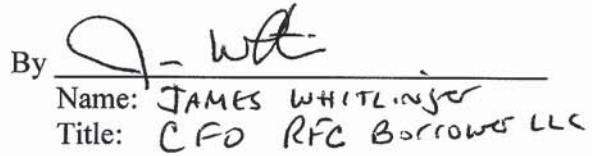 By
Name: JAMES WHITLINGER
Title: CFO RFC Borrower LLC